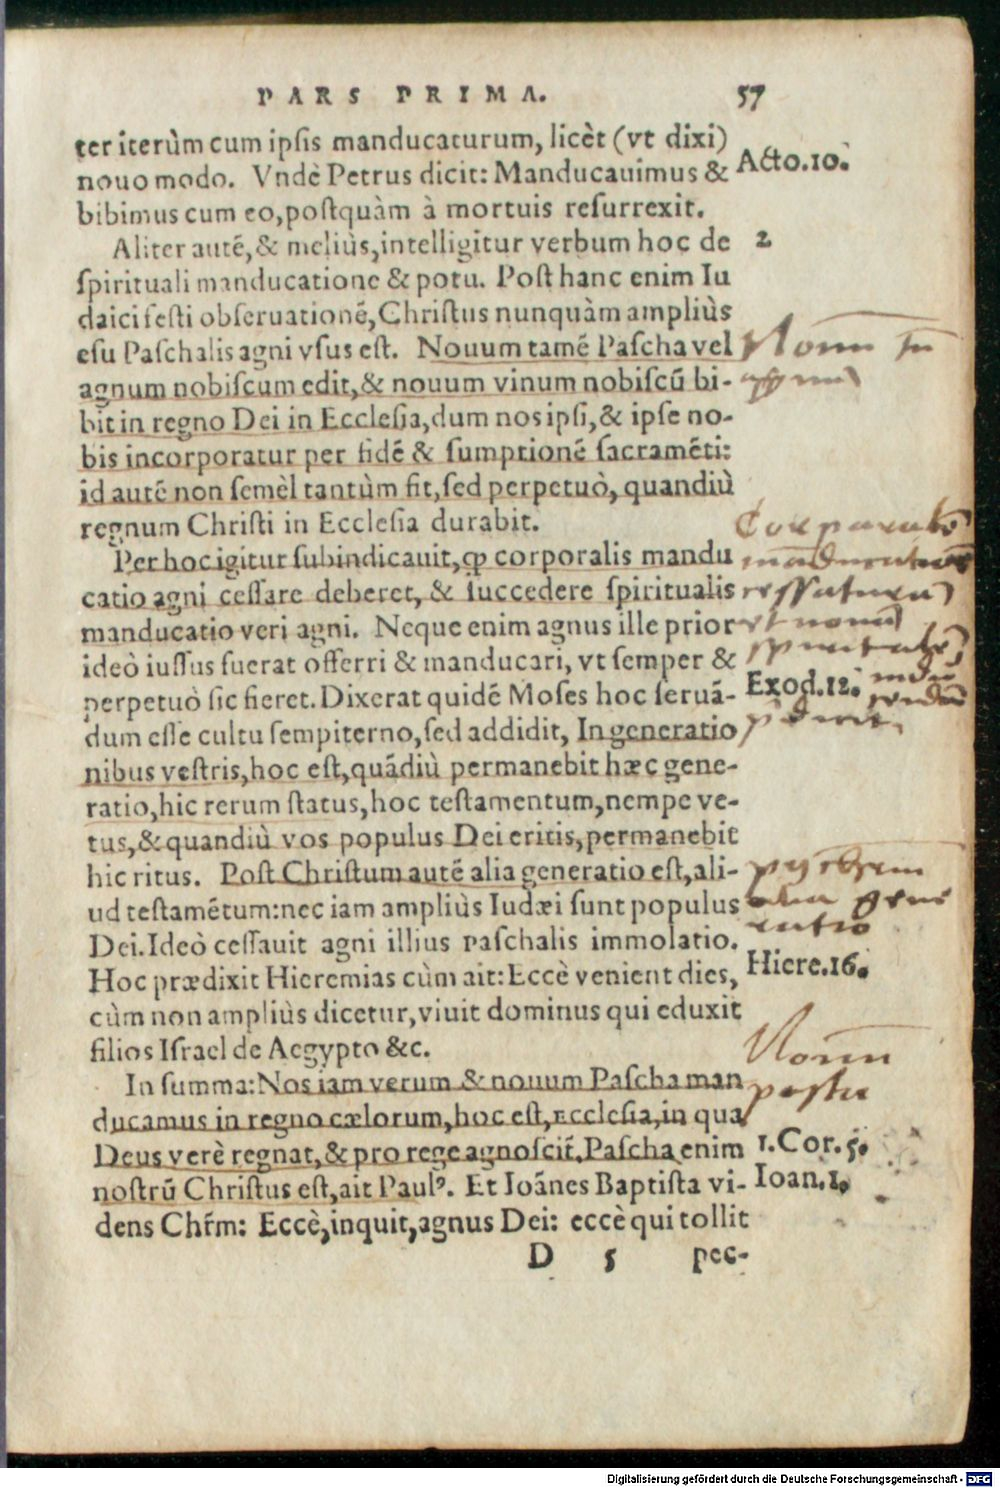 PARS PRIMA. 57
ter iterùm cum ipsis manducaturum, licèt (vt dixi)
nouo modo. Vndè Petrus dicit: Manducauimus &
Acto.10.
bibimus cum eo, postquàm à mortuis resurrexit.
Aliter autē, & meliùs, intelligitur verbum hoc de
2
spirituali manducatione & potu. Post hanc enim Iu
daici festi obseruationē, Christus nunquàm ampliùs
esu Paschalis agni vsus est. Nouum tamē Pascha vel
agnum nobiscum edit, & nouum vinum nobiscū bi-
bit in regno Dei in Ecclesia, dum nos ipsi, & ipse no-
bis incorporatur per fidē & sumptionē sacramēti:
id autē non semèl tantùm fit, sed perpetuò, quandiù
regnum Christi in Ecclesia durabit.
Per hoc igitur subindicauit, ꝙ corporalis mandu
catio agni cessare deberet, & succedere spiritualis
cessaturam
manducatio veri agni. Neque enim agnus ille prior
et nouā
ideò iussus fuerat offerri & manducari, vt semper &
perpetuò sic fieret. Dixerat quidē Moses hoc seruā-
Exod.12.
dum esse cultu sempiterno, sed addidit, In generatio
nibus vestris, hoc est, quādiù permanebit hæc gene-
ratio, hic rerum status, hoc testamentum, nempe ve-
tus, & quandiù vos populus Dei eritis, permanebit
hic ritus. Post Christum autē alia generatio est, ali-
ud testamētum: nec iam ampliùs Iudæi sunt populus
alia gene
ratio
Dei. Ideò cessauit agni illius paschalis immolatio.
Hoc prædixit Hieremias cùm ait: Eccè venient dies,
Hiere.16.
cùm non ampliùs dicetur, viuit dominus qui eduxit
filios Israel de Aegypto &c.
In summa: Nos iam verum & nouum Pascha man
pascha
ducamus in regno cælorum, hoc est, Ecclesia, in qua
Deus verè regnat, & pro rege agnoscit̄. Pascha enim
1.Cor.5.
nostrū Christus est, ait Paulꝰ. Et Ioānes Baptista vi-
Ioan.1.
dens Chr̄m: Eccè, inquit, agnus Dei: eccè qui tollit
D 5 pec-
Digitalisierung gefördert durch die Deutsche Forschungsgemeinschaft - DFG